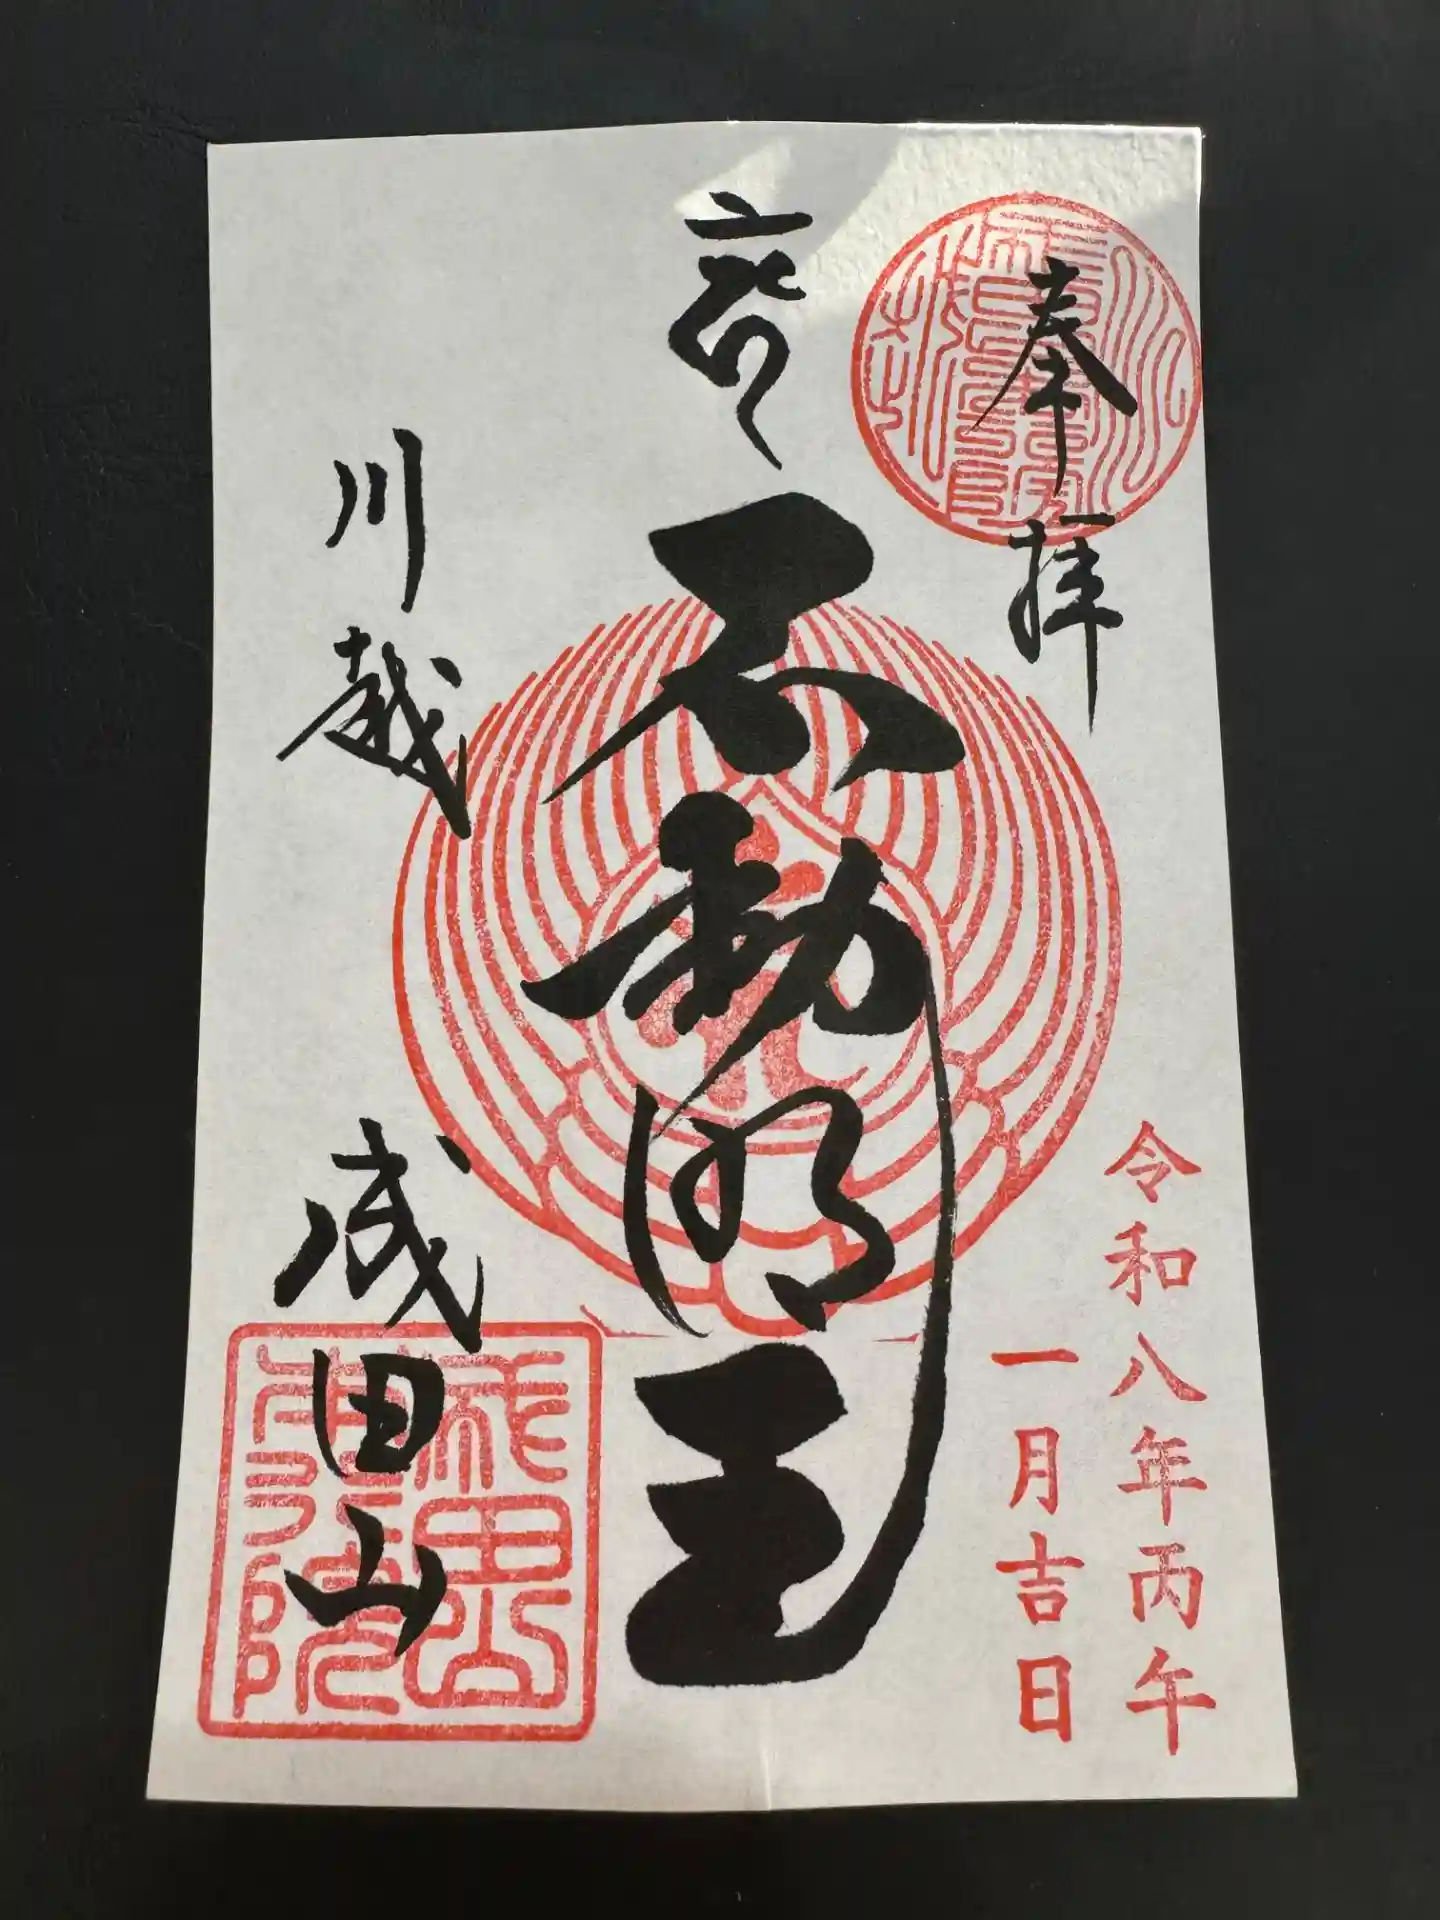 奉拝
令和八年丙午
一月吉日
不動明王
川越
成田山
成田山本行院